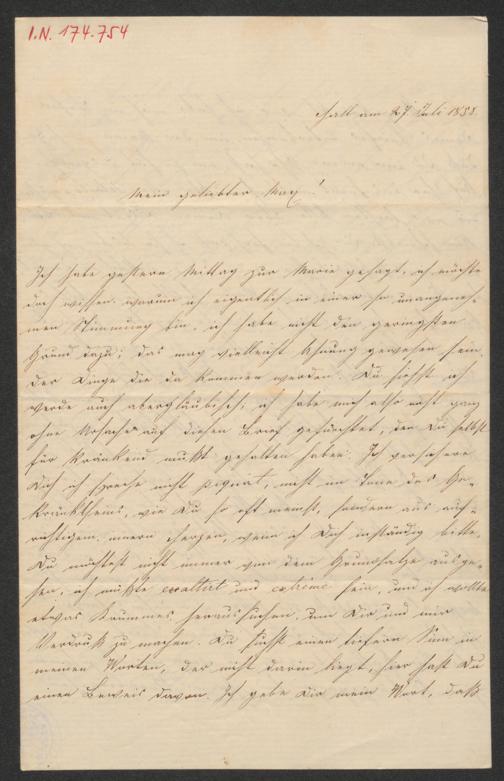 I.N. 174.754
Hall am 27 Juli 1888.
Mein geliebter Max!
Ich habe gestern Mittag zur Marie gesagt, ich möchte
doch wissen, warum ich eigentlich in einer so unangeneh-
men Stimmung bin, ich habe nicht den geringsten
Grund dazu; das mag vielleicht Ahnung gewesen sein,
der Dinge die da kommen werden. Du siehst ich
werde auch abergläubisch, ich habe mich also nicht ganz
ohne Ursache auf diesen Brief gefürchtet, den Du selbst
für kränkend mußt gehalten haben. Ich versichere
Dich ich spreche nicht piquirt, nicht im Tone des Ge-
kränktseins, wie Du so oft meinst, sondern aus auf-
richtigem innern Herzen, wenn ich Dich inständig bitte,
Du möchtest nicht immer von dem Grundsatze ausge-
hen, ich müßte exaltirt und extrême sein, und ich wollte
etwas Krummes heraussuchen, um Dir und mir
Verdruß zu machen. Du suchst einen tiefern Sinn in
meinen Worten, der nicht darin liegt, hier hast Du
einen Beweis davon. Ich gebe Dir mein Wort, daß